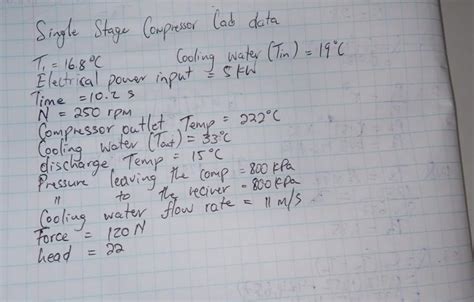 Single Stage Compressor Lab data
T₁ = 16.8°C Cooling water (Tin) = 19°C
Electrical power input = 5 kW
Time = 10.2 s
N = 250 rpm
Compressor outlet Temp = 222°C
Cooling water (Tout) = 33°C
discharge Temp = 15°C
Pressure leaving the comp = 800 kPa
" to the reciver = 800 kPa
Cooling water flow rate = 11 m/s
Force = 120 N
head = 22